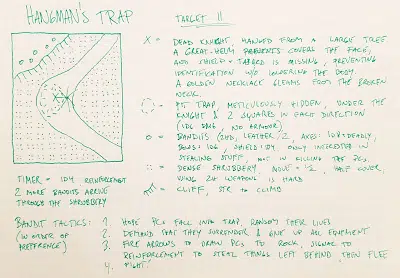 HANGMAN'S TRAP
TARGET 11
X = DEAD KNIGHT, HANGED FROM A LARGE TREE
A GREAT-HELM PREVENTS COVERS THE FACE,
AND SHIELD + TABARD IS MISSING, PREVENTING
IDENTIFICATION W/O LOWERING THE BODY.
A GOLDEN NECKLACE GLEAMS FROM THE BROKEN
NECK.
= PIT TRAP, METICULOUSLY HIDDEN, UNDER THE
KNIGHT & 2 SQUARES IN EACH DIRECTION
(1D6 DMG, NO ARMOR)
O = BANDITS (2HD, LEATHER/2, AXES: 1D8+DEADLY,
BOWS: 1D6, SHIELD: 1D4 ONLY INTERESTED IN
STEALING STUFF, NOT IN KILLING THE PCS.
:: = DENSE SHRUBBERY, MOVE = 1/2, HALF COVER,
USING 2H WEAPONS IS HARD
= CLIFF, STR TO CLIMB
TIMER = 1D4 REINFORCEMENT
2 MORE BANDITS ARRIVE
THROUGH THE SHRUBBERY
BANDIT TACTICS:
(IN ORDER OF
PREFERENCE)
1. HOPE PCS FALL INTO TRAP, RANSOM THEIR LIVES
2. DEMAND THAT THEY SURRENDER & GIVE UP ALL EQUIPMENT
3. FIRE ARROWS TO DRAW PCS TO ROCK, SIGNAL TO
REINFORCEMENT TO STEAL THINGS LEFT BEHIND THEN FLEE
4. FIGHT!